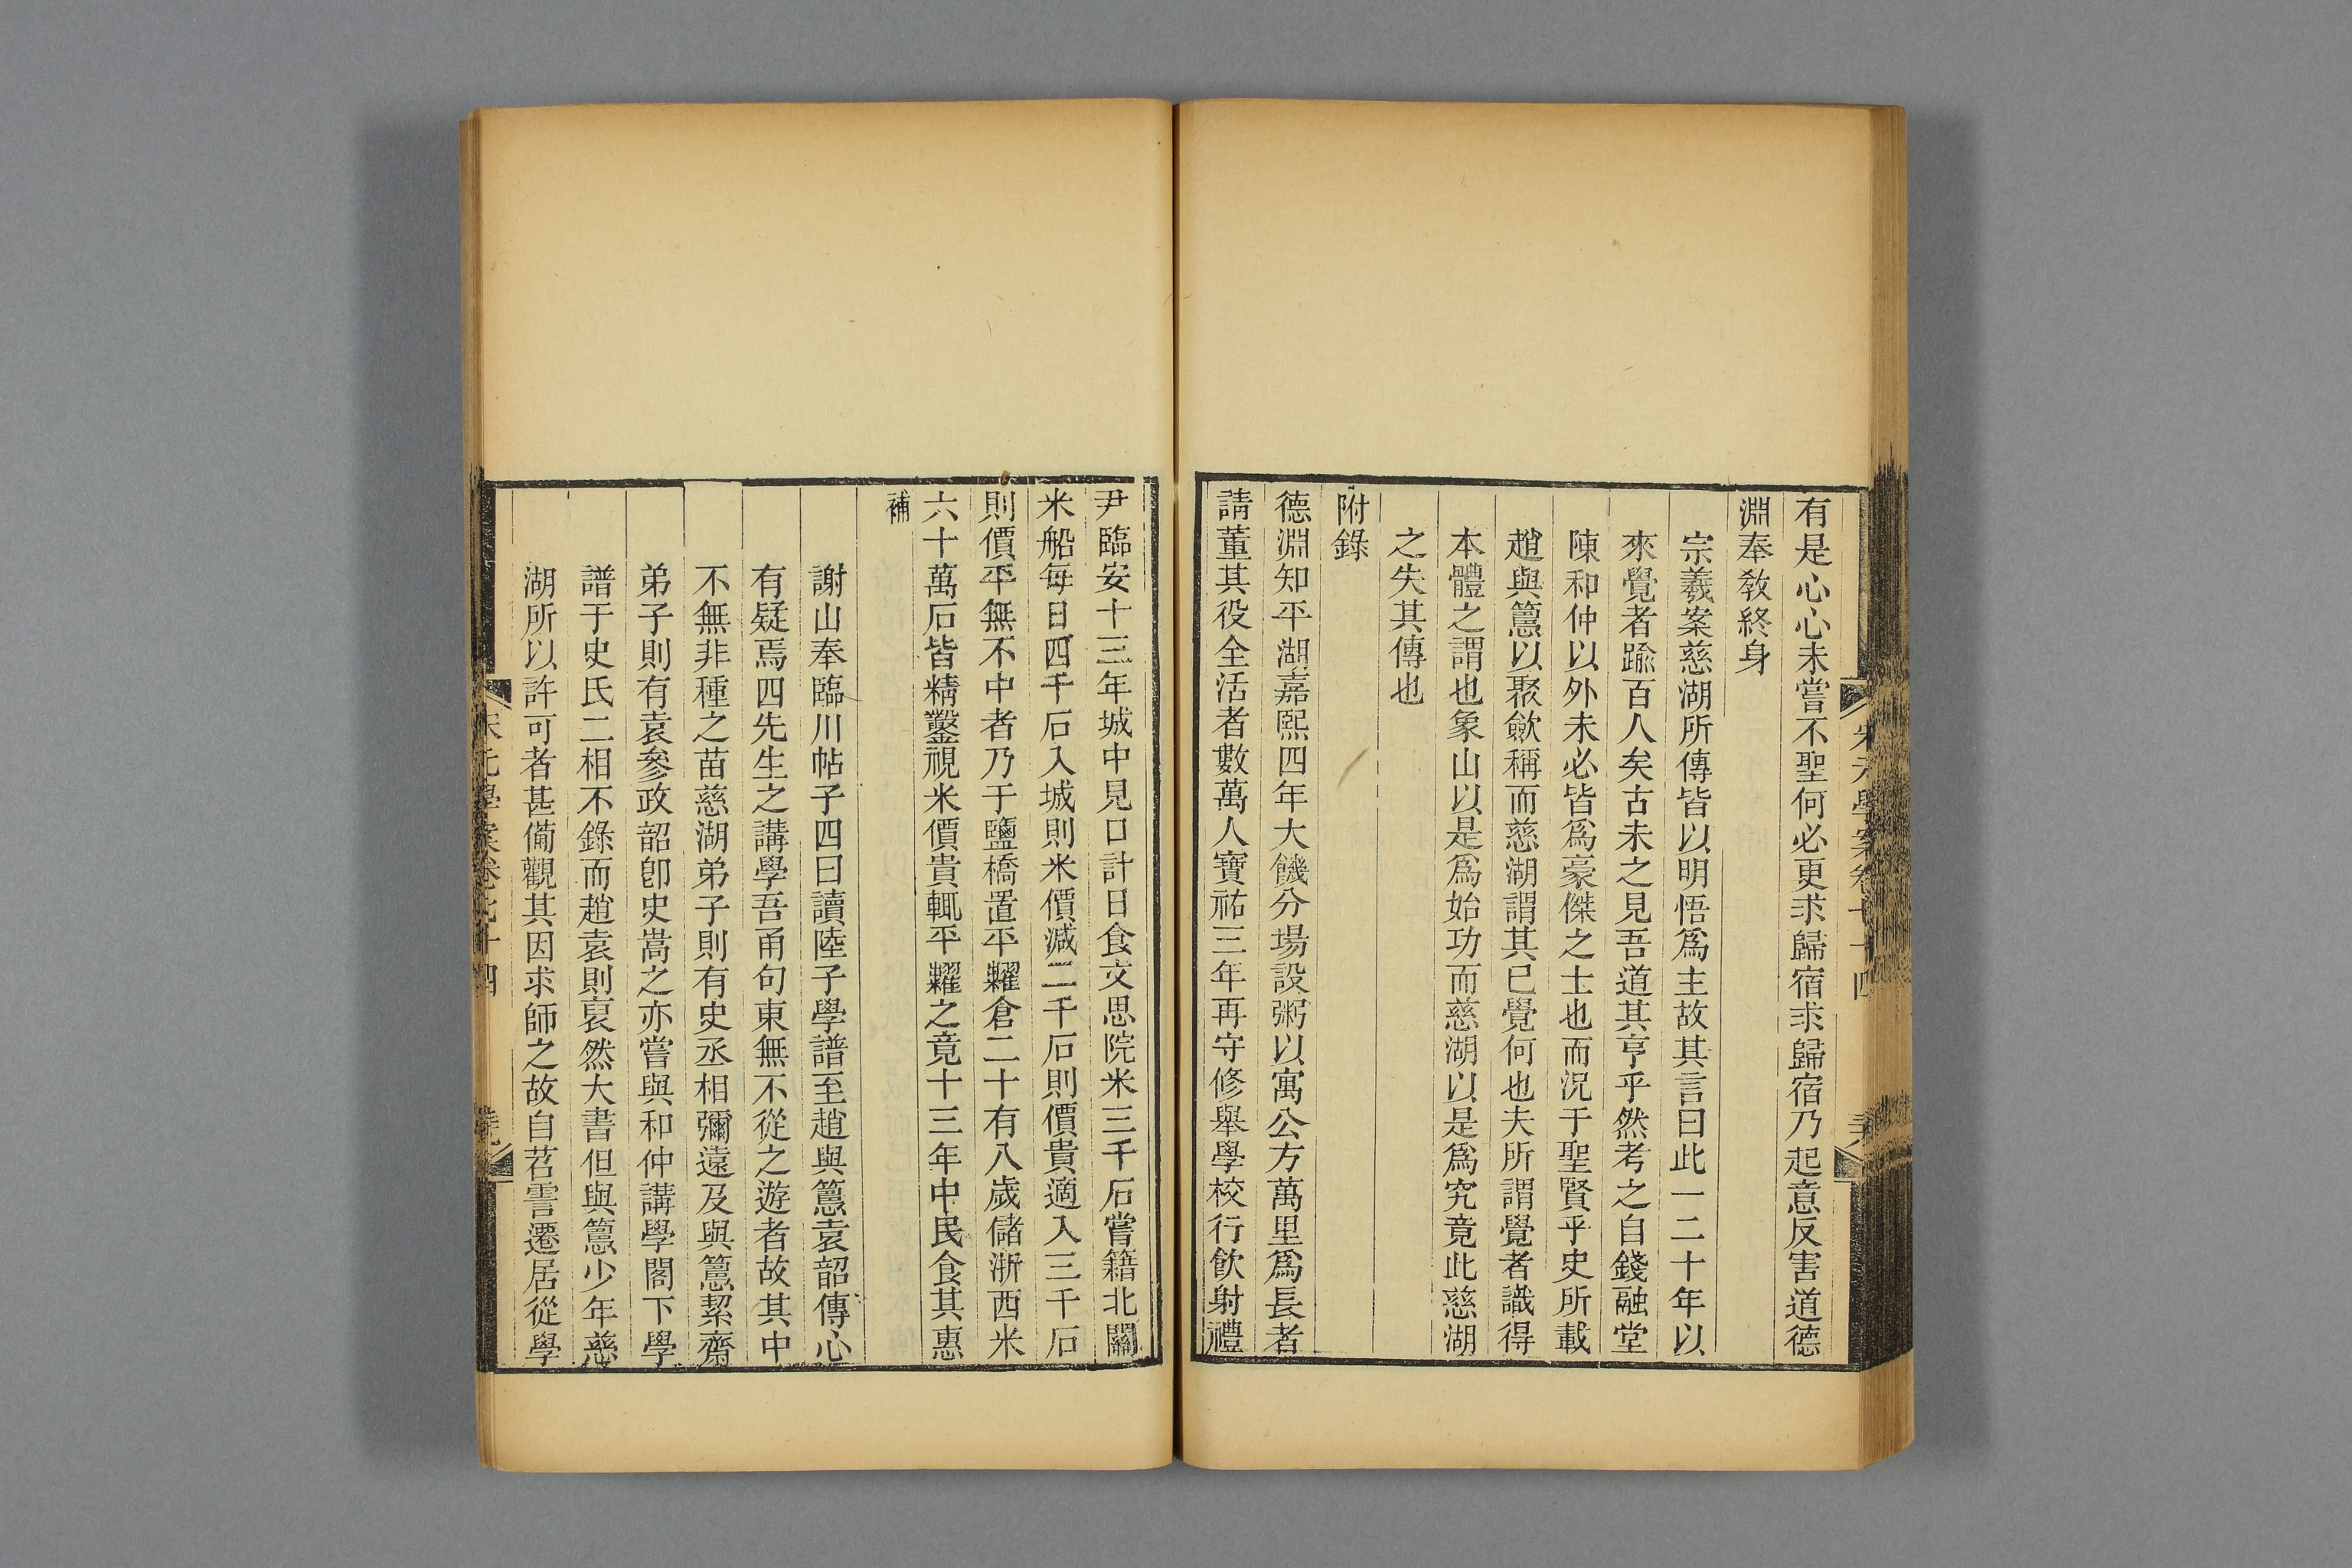 有是心心未嘗不聖何必更求歸宿求歸宿乃起意反害道德
淵奉敎終身
宗羲案慈湖所傳皆以明悟爲主故其言曰此一二十年以
來覺者踰百人矣古未之見吾道其亨乎然考之自錢融堂
陳和仲以外未必皆爲豪傑之士也而況于聖賢乎史所載
趙與𥲅以聚斂稱而慈湖謂其已覺何也夫所謂覺者識得
本體之謂也象山以是爲始功而慈湖以是爲究竟此慈湖
之失其傳也
附錄
德淵知平湖嘉熙四年大饑分場設粥以寓公方萬里爲長者
請董其役全活者數萬人寶祐三年再守修舉學校行飮射禮
尹臨安十三年城中見口計日食文思院米三千石嘗籍北關
米船每日四千石入城則米價減二千石則價貴適入三千石
則價平無不中者乃于鹽橋置平糴倉二十有八歲儲浙西米
六十萬石皆精鑿視米價貴輒平糶之竟十三年中民食其惠
補
謝山奉臨川帖子四曰讀陸子學譜至趙與𥲅袁韶傳心
有疑焉四先生之講學吾甬句東無不從之遊者故其中
不無非種之苗慈湖弟子則有史丞相彌遠及與𥲅絜齋
弟子則有袁參政韶卽史嵩之亦嘗與和仲講學閣下學
譜于史氏二相不錄而趙袁則裒然大書但與𥲅少年慈
湖所以許可者甚備觀其因求師之故自苕霅遷居從學
宋元學案卷七十四